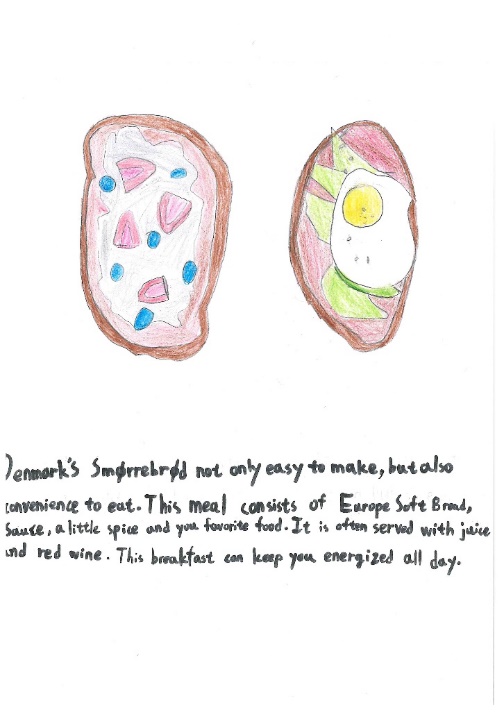 Denmark's Smørrebrød not only easy to make, but also
convenience to eat. This meal consists of Europe Soft Bread,
Sauce, a little spice and you favorite food. It is often served with juice
and red wine. This breakfast can keep you energized all day.